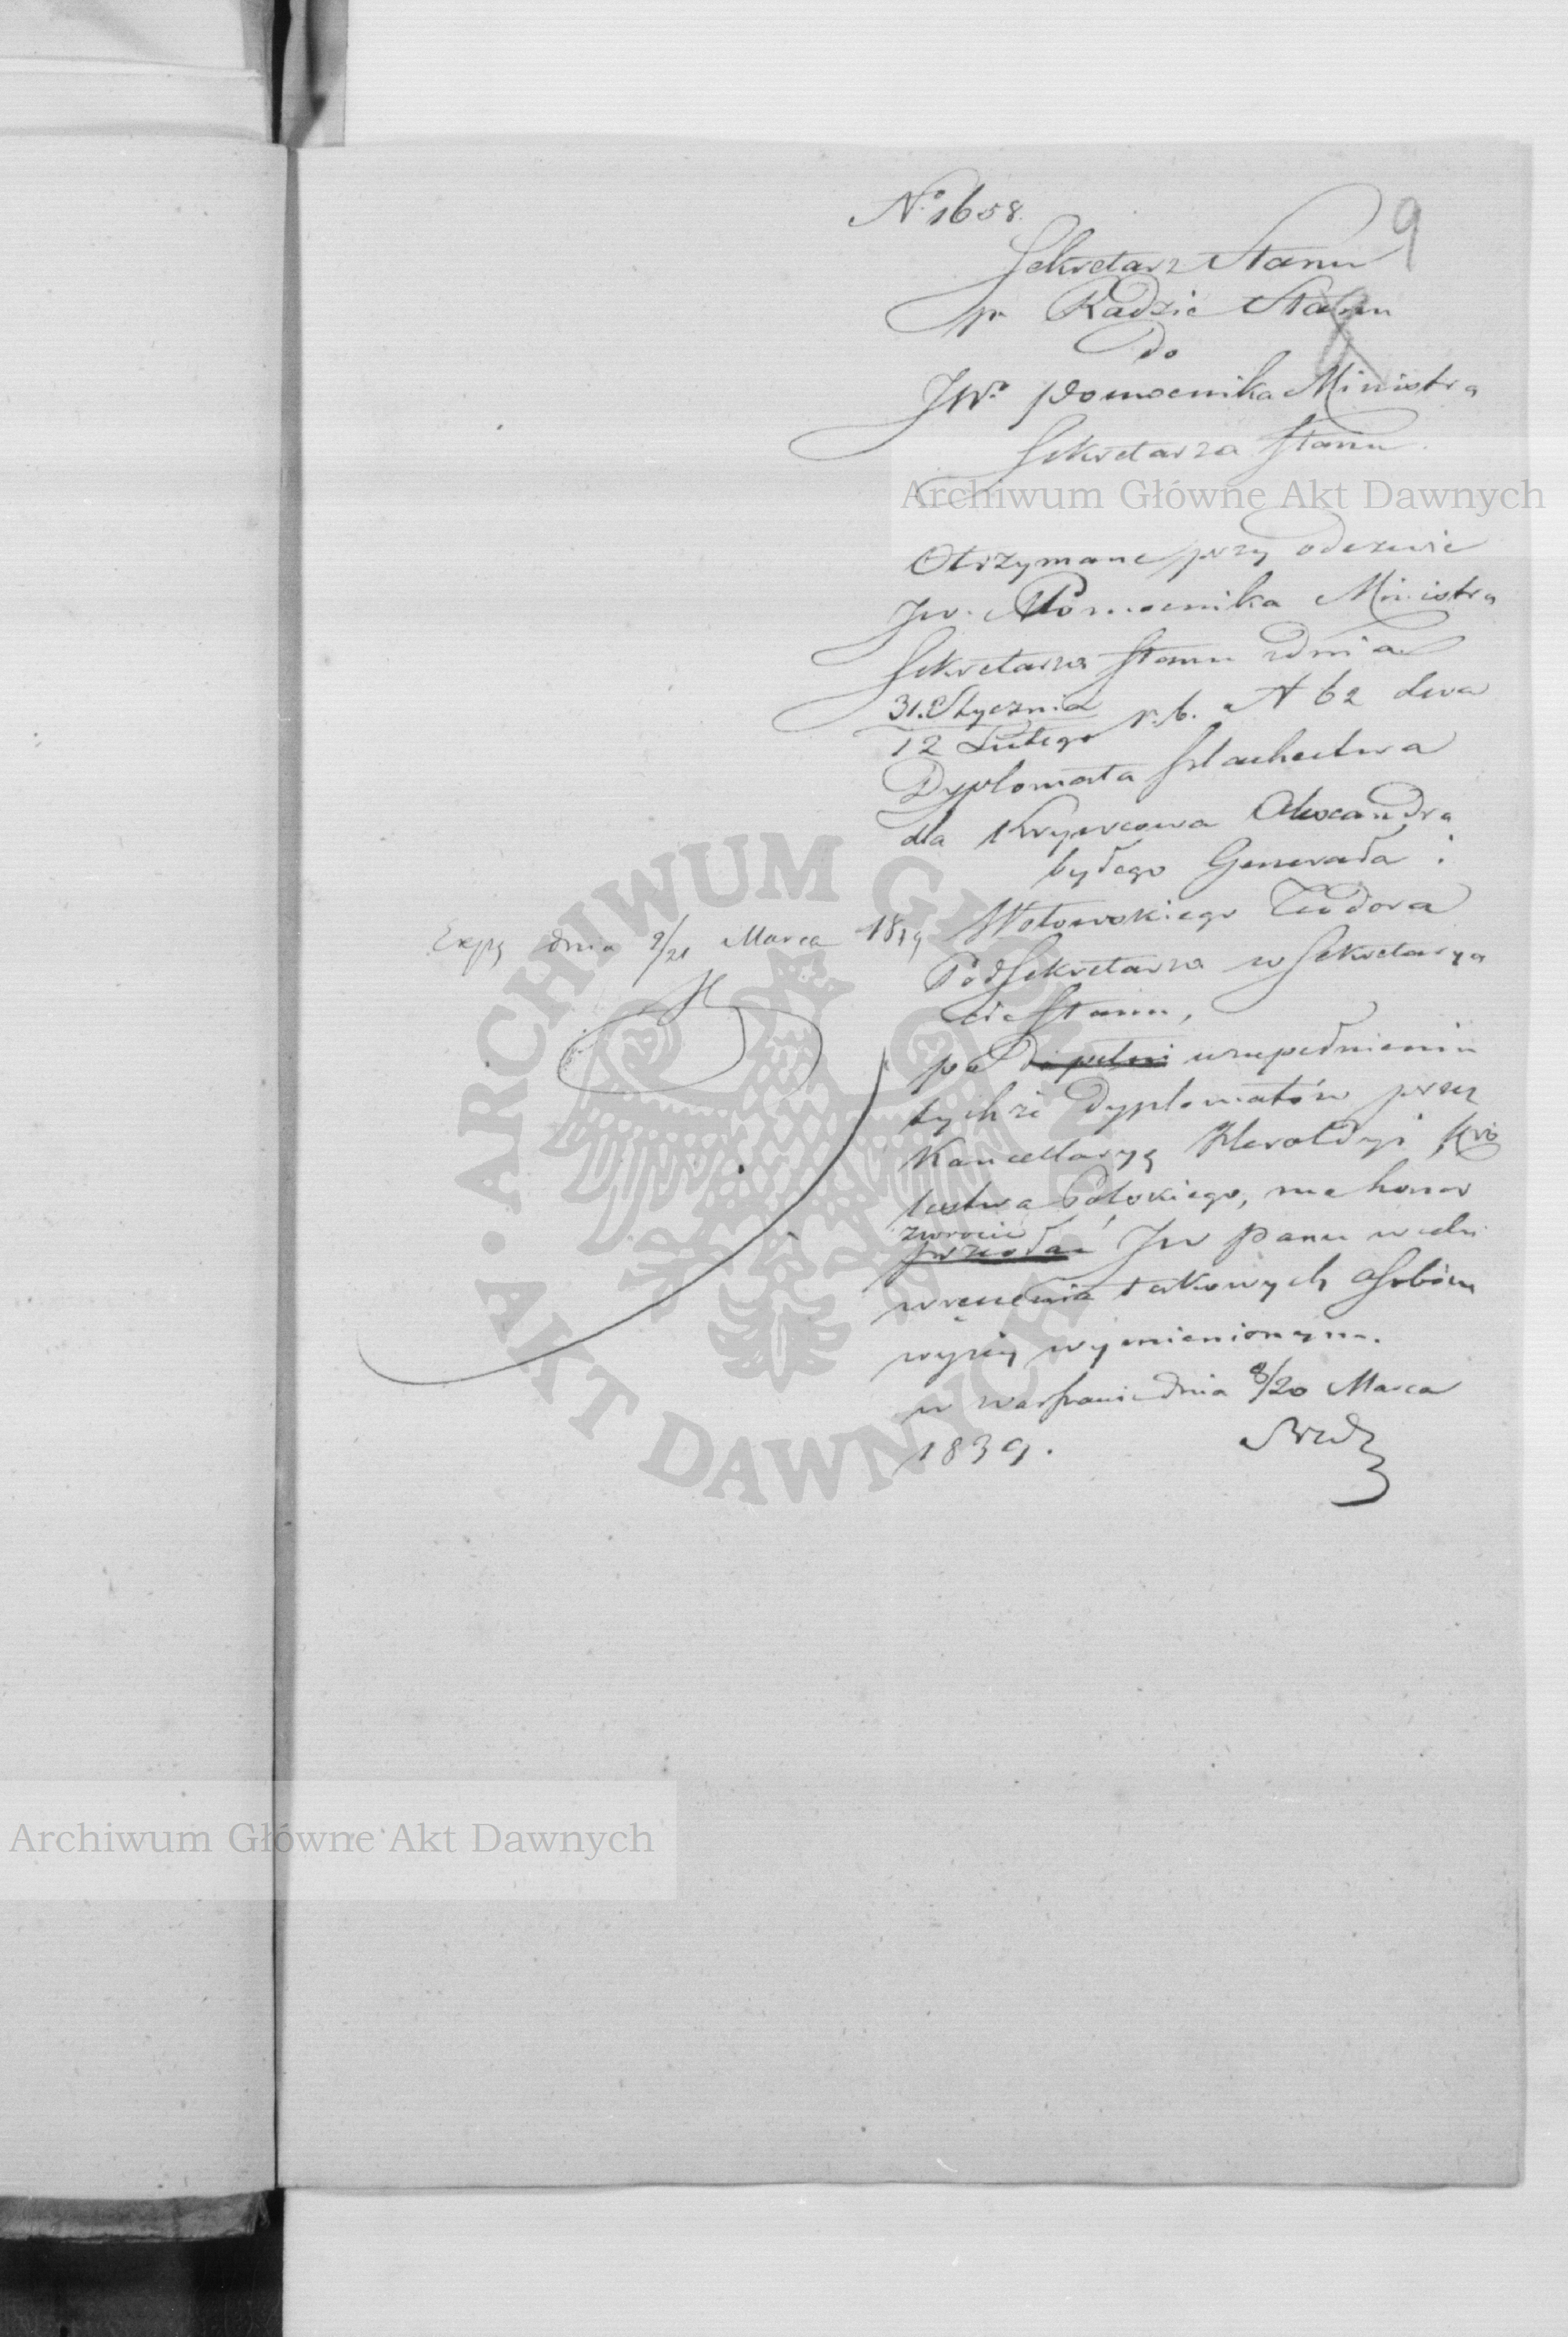 No 1658.
9
Sekretarz Stanu
pr Radzie Stanu
do
JWo Pomocnika Ministra
Sekretarza Stanu.
Archiwum Główne Akt Dawnych
Otrzymane przy odezwie
JW. Pomocnika Ministra
Sekretarza Stanu z dnia
31. Stycznia
12 Lutego r. b. N 62 dwa
Dyplomata Szlachectwa
dla Krywcowa Alexandra
byłego Generała i
Wołowskiego Teodora
Podsekretarza w Sekretarya
cie Stanu,
po uzupełnieniu
tychże Dyplomatów przez
Kancellaryą Heroldyi Kró
lestwa Polskiego, ma honor
zwrocić
przesłać JW Panu w celu
wręczenia takowych osobom
wyżej wymienionym.
w Warszawie dnia 8/20 Marca
1839.
Exp dnia 9/21 Marca 1839
ARCHIWUM GŁÓWNE AKT DAWNYCH
Archiwum Główne Akt Dawnych